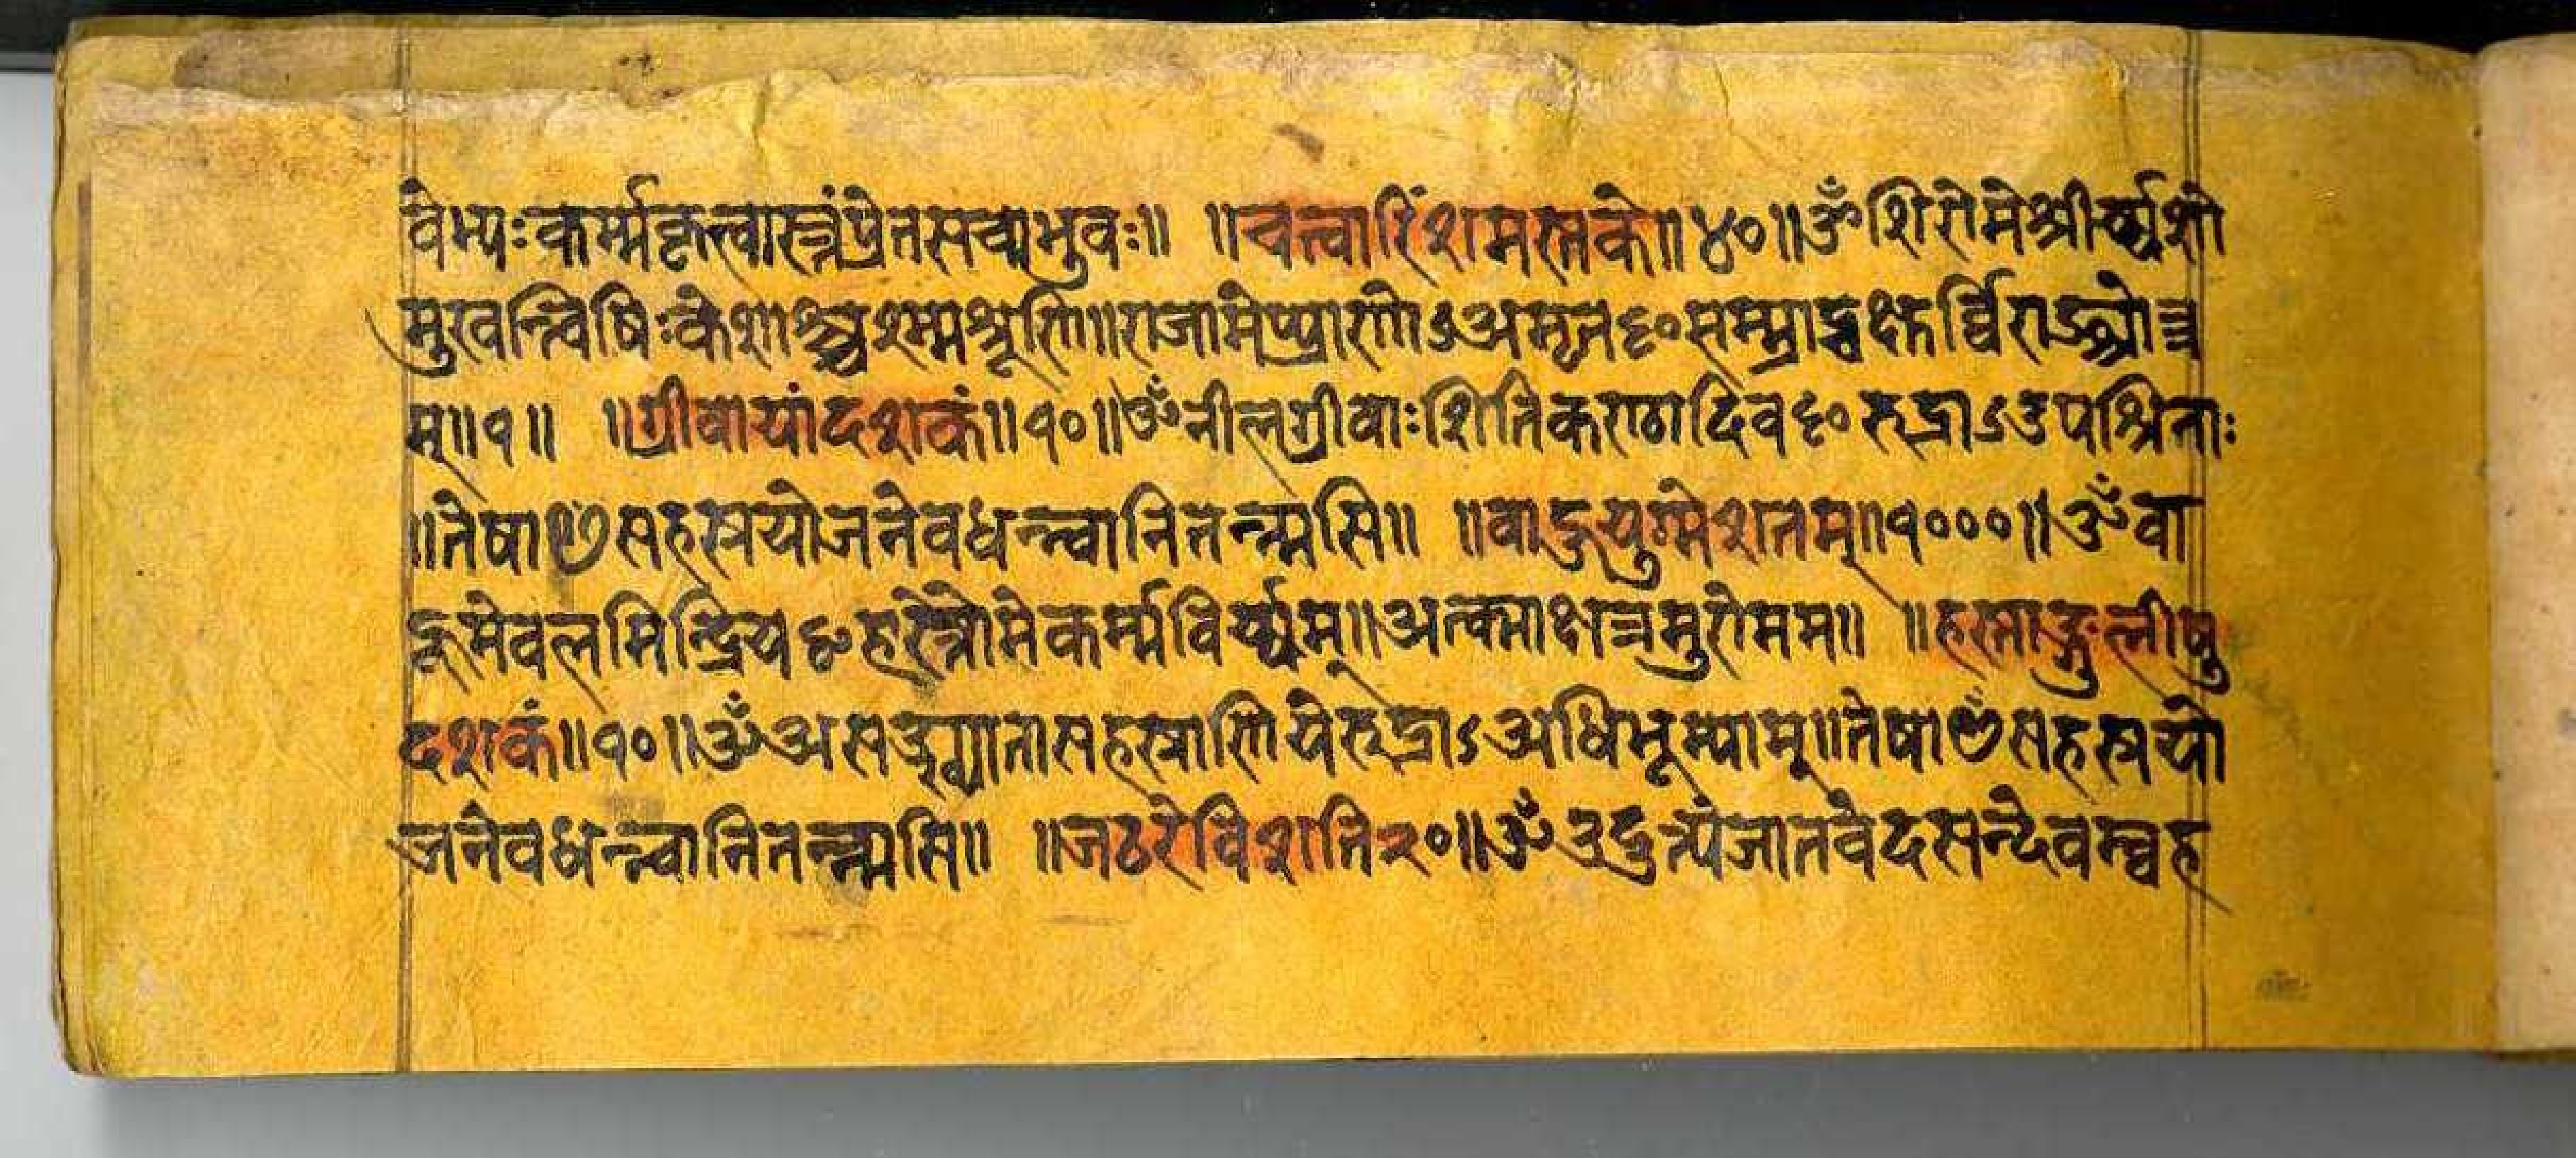 वेभ्यःकर्म्मकृत्त्वास्त्रंप्रेतसचाभुवः॥ ॥चत्त्वारिंशमस्तके॥४०॥ॐशिरोमेश्रीर्य्यशो
मुखन्त्विषिःकेशाश्च्चश्म्मश्रूणि॥राजामेप्प्राणोऽअमृतᳪसम्म्राट्चक्षुर्व्विराट्श्रोत्र
म्॥१॥ ॥ग्रीवायांदशकं॥१०॥ॐनीलग्रीवाःशितिकण्ठादिवᳪरुद्राऽउपश्रिताः
॥तेषाᳪसहस्रयोजनेवधन्न्वानितन्न्मसि॥ ॥वाहुयुग्मेशतम्॥१०००॥ॐवा
हूमेवलमिन्द्रियᳪहस्त्तोमेकर्म्मविर्य्यम्॥अत्क्माक्षत्रमुरोमम॥ ॥हस्ताङ्गुलीषु
दशकं॥१०॥ॐअसङ्ग्यातासहस्राणियेरुद्राऽअधिभूम्याम्॥तेषाᳪसहस्रयो
जनेवधन्न्वानितन्न्मसि॥ ॥जठरेविंशति२०॥ॐउदुत्यंजातवेदसन्देवम्वह